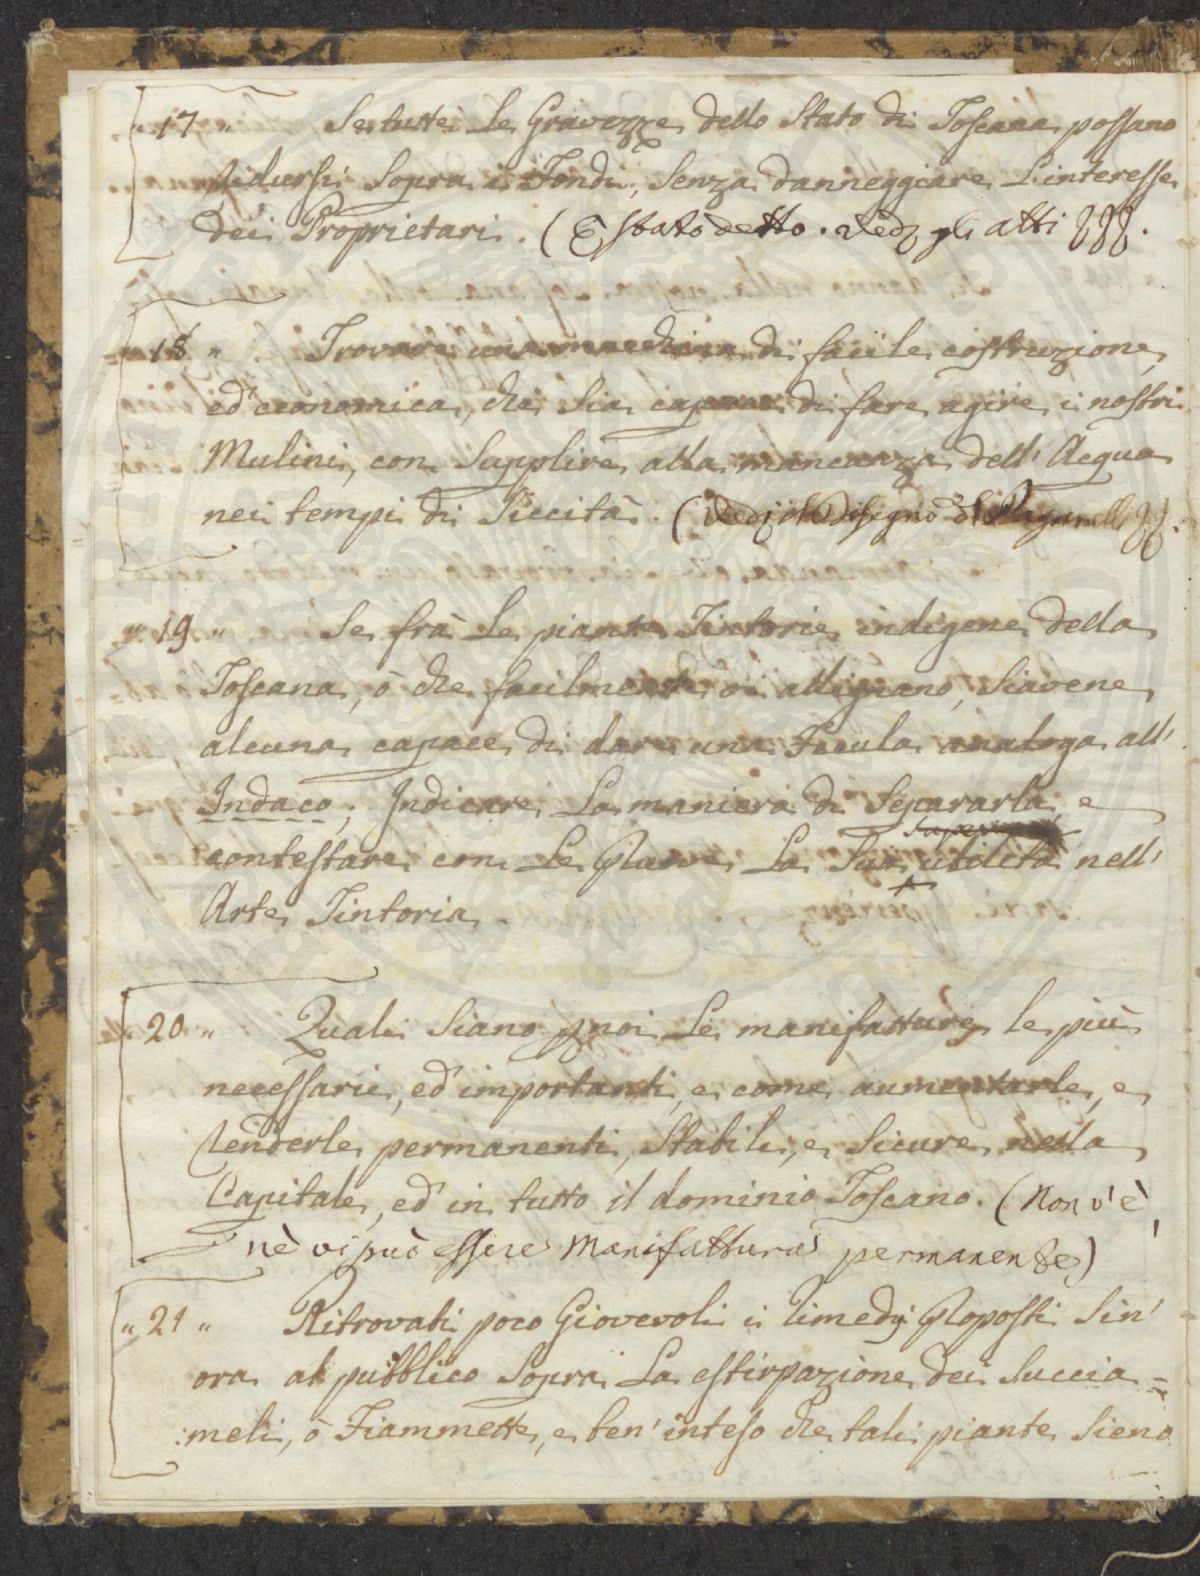 " 17 " Se tutte Le Gravezze dello Stato di Toscana possano
ridursi Sopra i Fondi, Senza danneggiare L'interesse
dei Proprietari. (È stato detto. Vedj gli atti
" 18 " Trovare una macchina di facile costruzione,
ed' economica, che Sia capace di fare agire i nostri
Mulini, con Supplire alla mancanza dell' Acqua
nei tempi di Siccità. (Vedj il Disegno di
" 19 " Se frà Le piante Tintorie indigene della
Toscana, ò che facilmente vi allignano, Siavene
alcuna capace di dare una Fecula analoga all'
Indaco; Indicare La maniera di Separarla, e
contestare con Le Prove La Sua utilità nell'
Arte Tintoria.
" 20 " Quali Siano p noi Le manifatture le più
necessarie, ed' importanti, e come aumentarle, e
renderle permanenti, Stabili, e Sicure nella
Capitale, ed' in tutto il dominio Toscano. (Non v'è,
nè vi può essere Manifattura permanente)
" 21 " Ritrovati poco Giovevoli i rimedj Proposti Sin'
ora al pubblico Sopra La estirpazione dei Succia=
:meli, ò Fiammette, e ben' inteso che tali piante Sieno